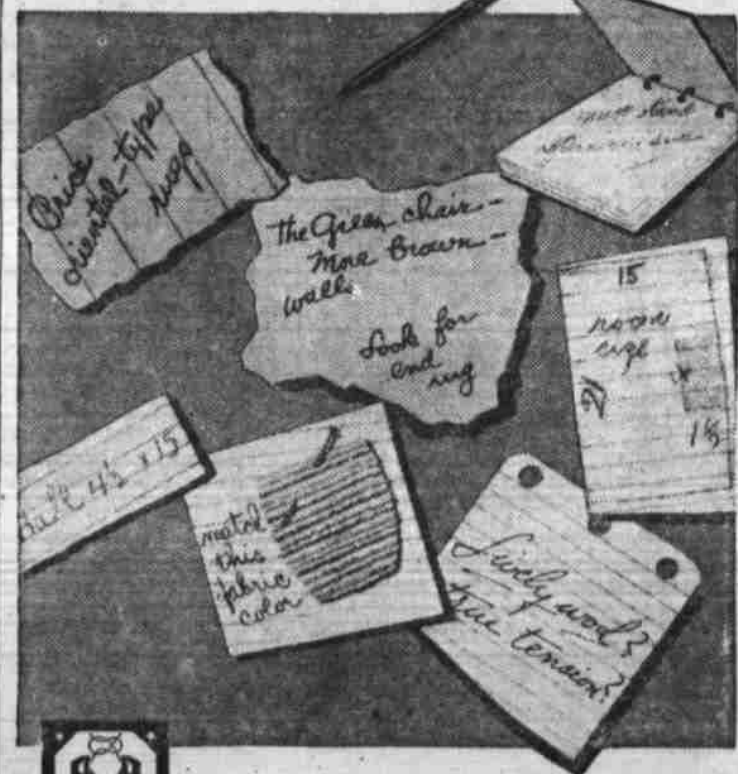 Price
oriental-type
rugs
must stand
the Green chair-
More Brown-
walls
Look for
end rug
15
room
size
21
Hall 4½ x 15
match
this
fabric
color
Lively wool?
true tension?